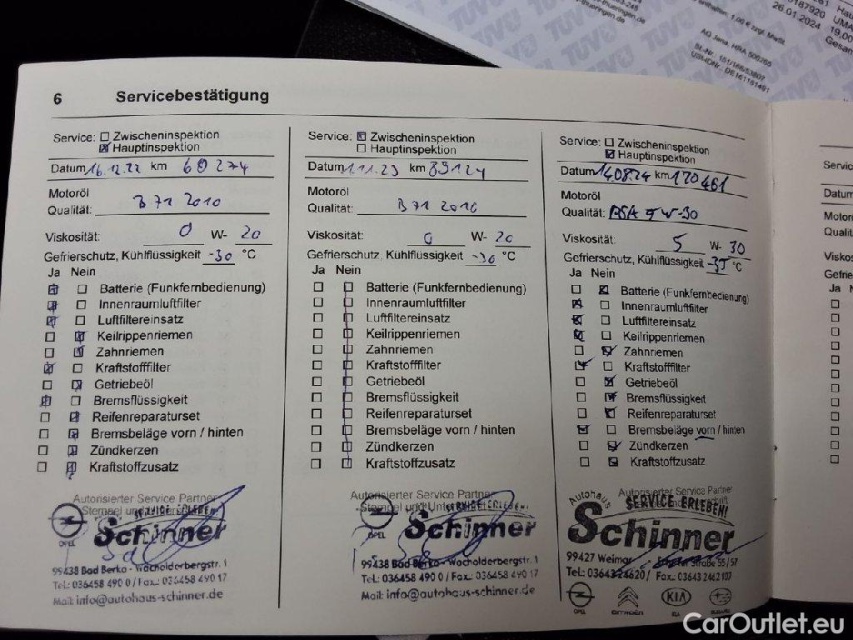 26.01.2024
6 Servicebestätigung
Service: Zwischeninspektion
Hauptinspektion
Datum 16.12.22 km 60274
Motoröl
Qualität: B71 2010
Viskosität: 0 W- 20
Gefrierschutz, Kühlflüssigkeit -30 °C
Ja Nein
Batterie (Funkfernbedienung)
Innenraumluftfilter
Luftfiltereinsatz
Keilrippenriemen
Zahnriemen
Kraftstofffilter
Getriebeöl
Bremsflüssigkeit
Reifenreparaturset
Bremsbeläge vorn / hinten
Zündkerzen
Kraftstoffzusatz
Autorisierter Service Partner
SERVICE ERLEBEN!
OPEL
Schinner
99438 Bad Berka - Wacholderbergstr. 1
Tel.: 036458 490 0 / Fax.: 036458 490 17
Mail: info@autohaus-schinner.de
Service: Zwischeninspektion
Hauptinspektion
Datum 1.11.23 km 89124
Motoröl
Qualität: B71 2010
Viskosität: 0 W- 20
Gefrierschutz, Kühlflüssigkeit -30 °C
Ja Nein
Batterie (Funkfernbedienung)
Innenraumluftfilter
Luftfiltereinsatz
Keilrippenriemen
Zahnriemen
Kraftstofffilter
Getriebeöl
Bremsflüssigkeit
Reifenreparaturset
Bremsbeläge vorn / hinten
Zündkerzen
Kraftstoffzusatz
Autorisierter Service Partner
SERVICE ERLEBEN!
OPEL
Schinner
99438 Bad Berka - Wacholderbergstr. 1
Tel.: 036458 490 0 / Fax.: 036458 490 17
Mail: info@autohaus-schinner.de
Service: Zwischeninspektion
Hauptinspektion
Datum 140824 km 120461
Motoröl
Qualität:
Viskosität: 5 W- 30
Gefrierschutz, Kühlflüssigkeit -35 °C
Ja Nein
Batterie (Funkfernbedienung)
Innenraumluftfilter
Luftfiltereinsatz
Keilrippenriemen
Zahnriemen
Kraftstofffilter
Getriebeöl
Bremsflüssigkeit
Reifenreparaturset
Bremsbeläge vorn / hinten
Zündkerzen
Kraftstoffzusatz
Autorisierter Service Partner
Autohaus
SERVICE ERLEBEN!
Schinner
99427 Weimar
Tel.: 03643 24620 / Fax.: 03643 2462 107
OPEL CITROËN KIA SUBARU
CarOutlet.eu